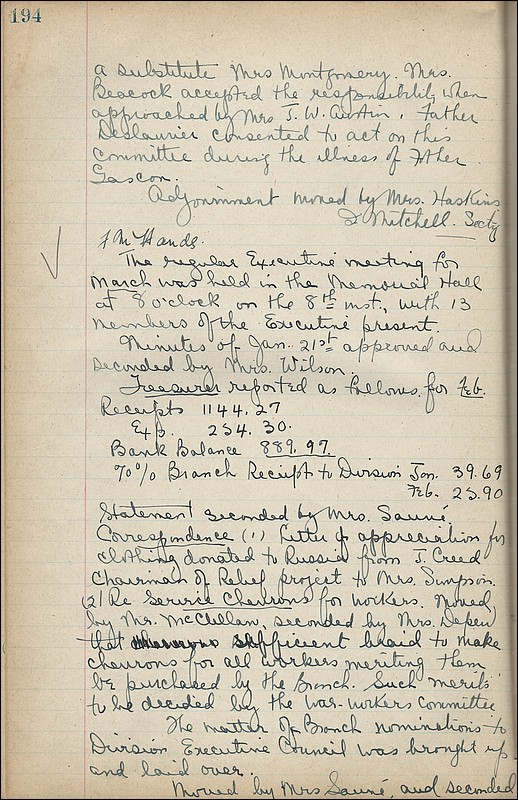 194
a substitute Mrs Montgomery. Mrs.
Beacock accepted the responsibility when
approached by Mrs J. W. Austin. Father
Deslaurier consented to act on this
committee during the illness of Father
Gascon.
Adjournment moved by Mrs. Haskins
I Mitchell. Secty
The regular Executive meeting for
March was held in the Memorial Hall
at 8 o'clock on the 8th inst., with 13
members of the Executive present.
Minutes of Jan. 21st approved and
seconded by Mrs. Wilson.
Treasurer reported as follows for Feb.
Receipts 1144.27
Exp. 254.30.
Bank Balance 889.97.
70% Branch Receipt to Division Jan. 39.69
Feb. 25.90
Statement seconded by Mrs. Sauné
Correspondence (1) Letter of appreciation for
clothing donated to Russia from J. Creed
Chairman of Relief project to Mrs. Simpson.
(2) Re Service Chevrons for workers. Moved,
by Mr. McClellan, seconded by Mrs. Depew
that sufficient braid to make
chevrons for all workers meriting them
be purchased by the Branch. Such merits
to be decided by the war-workers committee
The matter of Branch nominations to
Division Executive Council was brought up
and laid over.
Moved by Mrs Sauné, and seconded